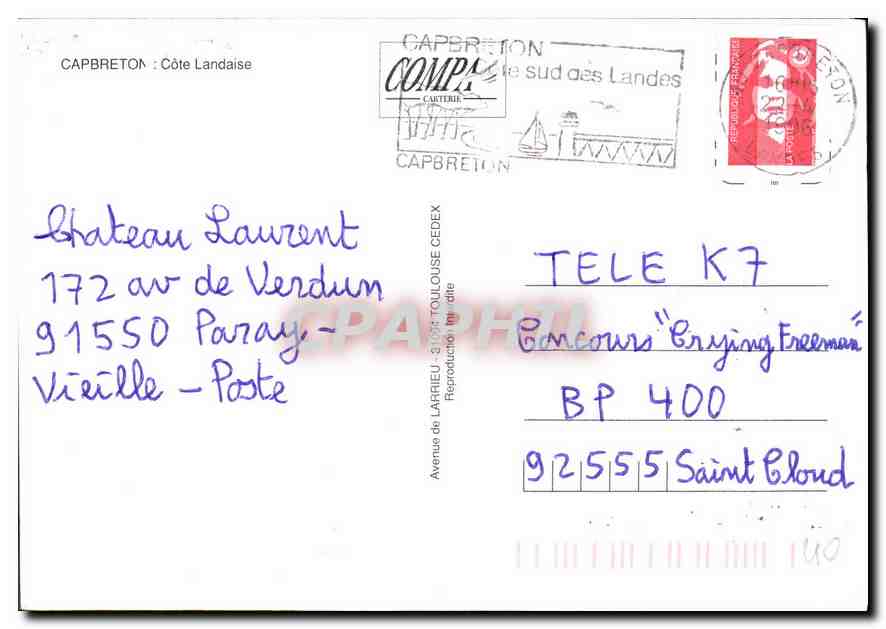 CAPBRETON : Côte Landaise
CAPBRETON
le sud des Landes
CAPBRETON
COMPA
CARTERIE
REPUBLIQUE FRANÇAISE
LA POSTE
1996
Chateau Laurent
172 av de Verdun
91550 Paray-
Vieille-Poste
Avenue de LARRIEU - 31094 TOULOUSE CEDEX
Reproduction Interdite
CPAPHIL
TELE K7
Concours "Crying Freeman"
BP 400
92555 Saint Cloud
40